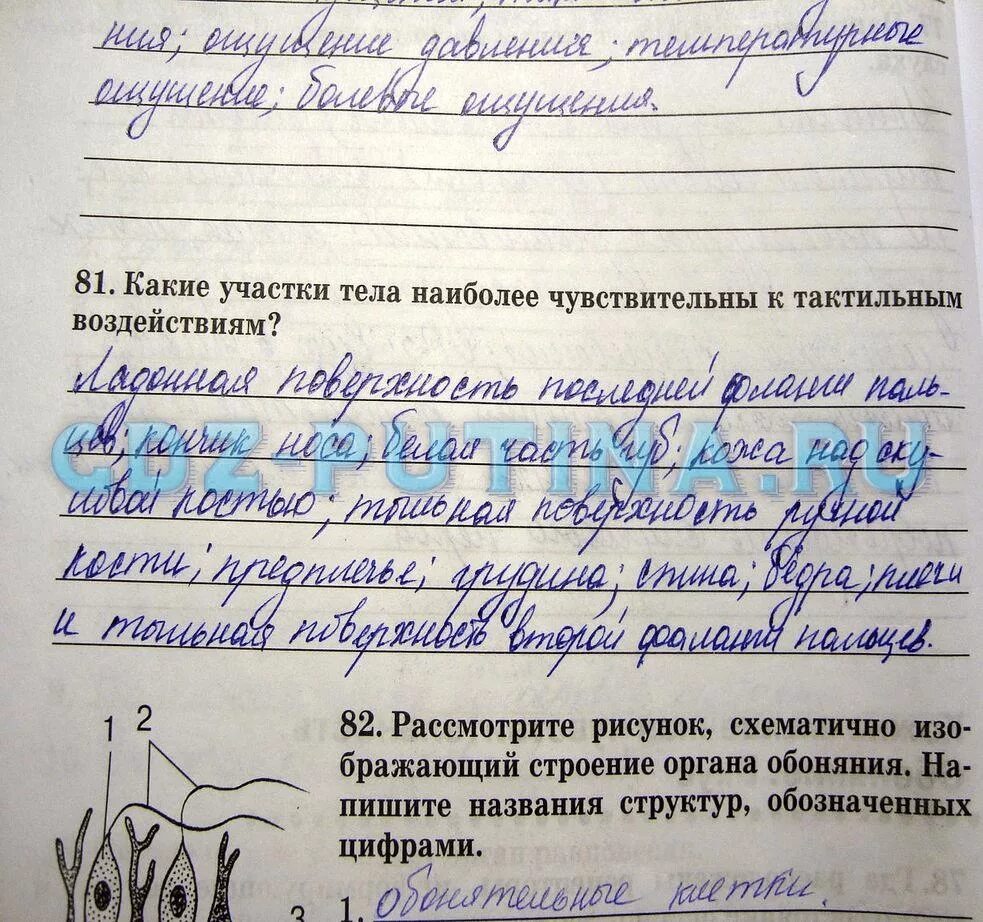 ния; ощущение давления; температурные
ощущение; болевые ощущения.
81. Какие участки тела наиболее чувствительны к тактильным
воздействиям?
Ладонная поверхность последней фаланги паль-
цев; кончик носа; белая часть губ; кожа над ску-
ловой костью; тыльная поверхность ручной
кости; предплечье; грудина; спина; бёдра; плечи
и тыльная поверхность второй фаланги пальцев.
GDZ-PUTINA.RU
1 2
82. Рассмотрите рисунок, схематично изо-
бражающий строение органа обоняния. На-
пишите названия структур, обозначенных
цифрами.
3
1. обонятельные клетки.